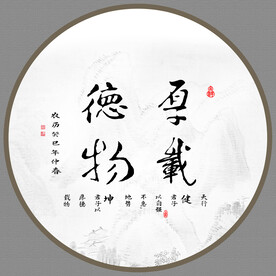 厚德
載物
天行
健
君子
以自強
不息
地勢
坤
君子以
厚德
載物
农历癸巳年仲春